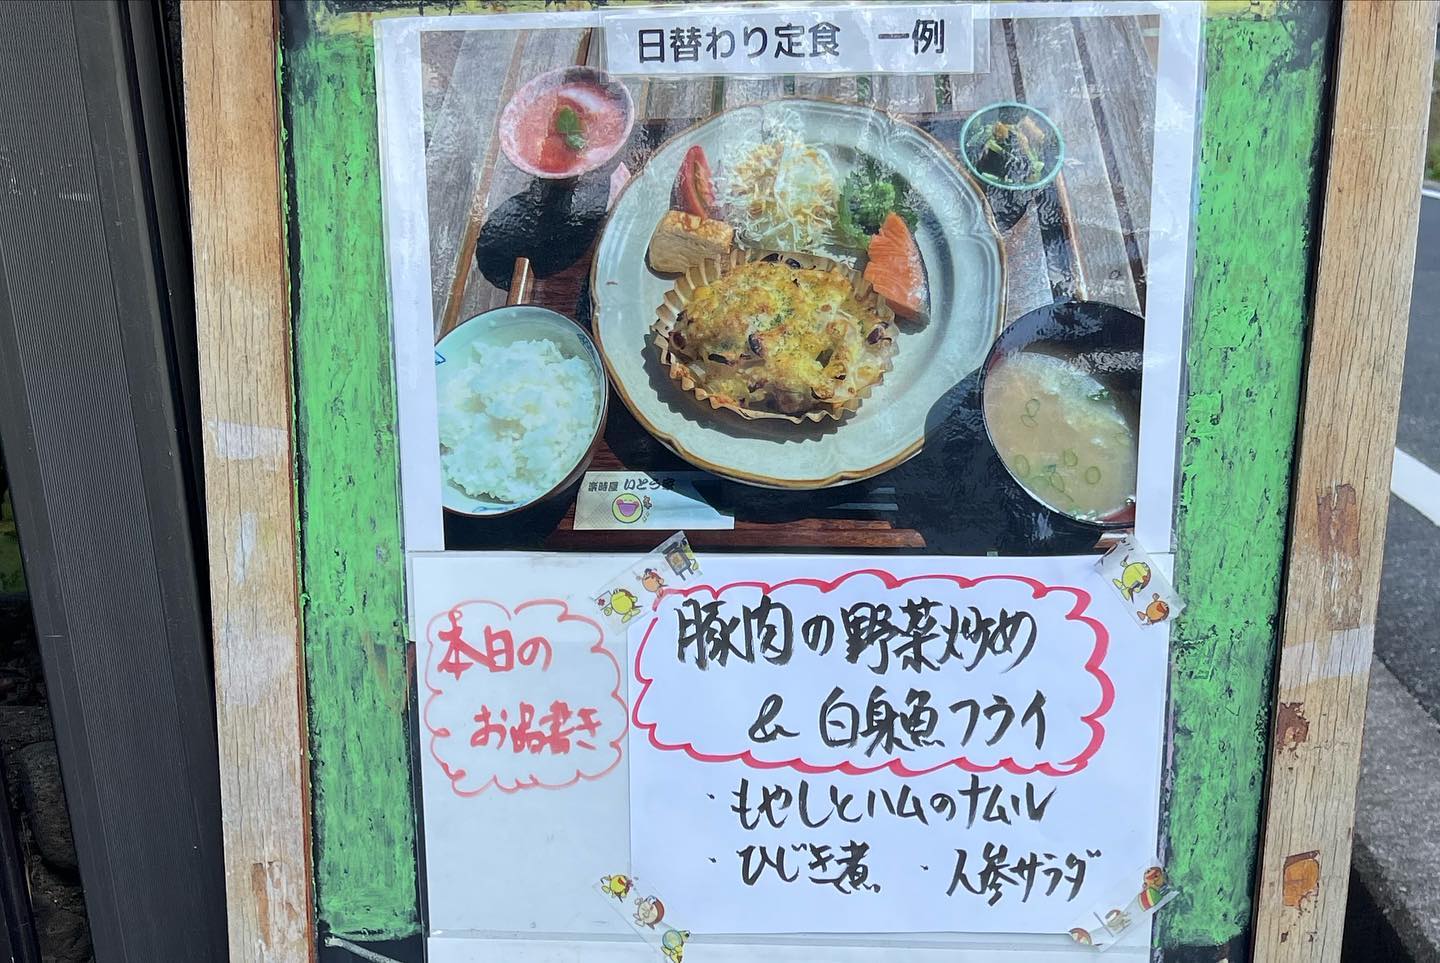 日替わり定食 一例
楽時屋 いとう家
本日の
お品書き
豚肉の野菜炒め
& 白身魚フライ
・もやしとハムのナムル
・ひじき煮 ・人参サラダ